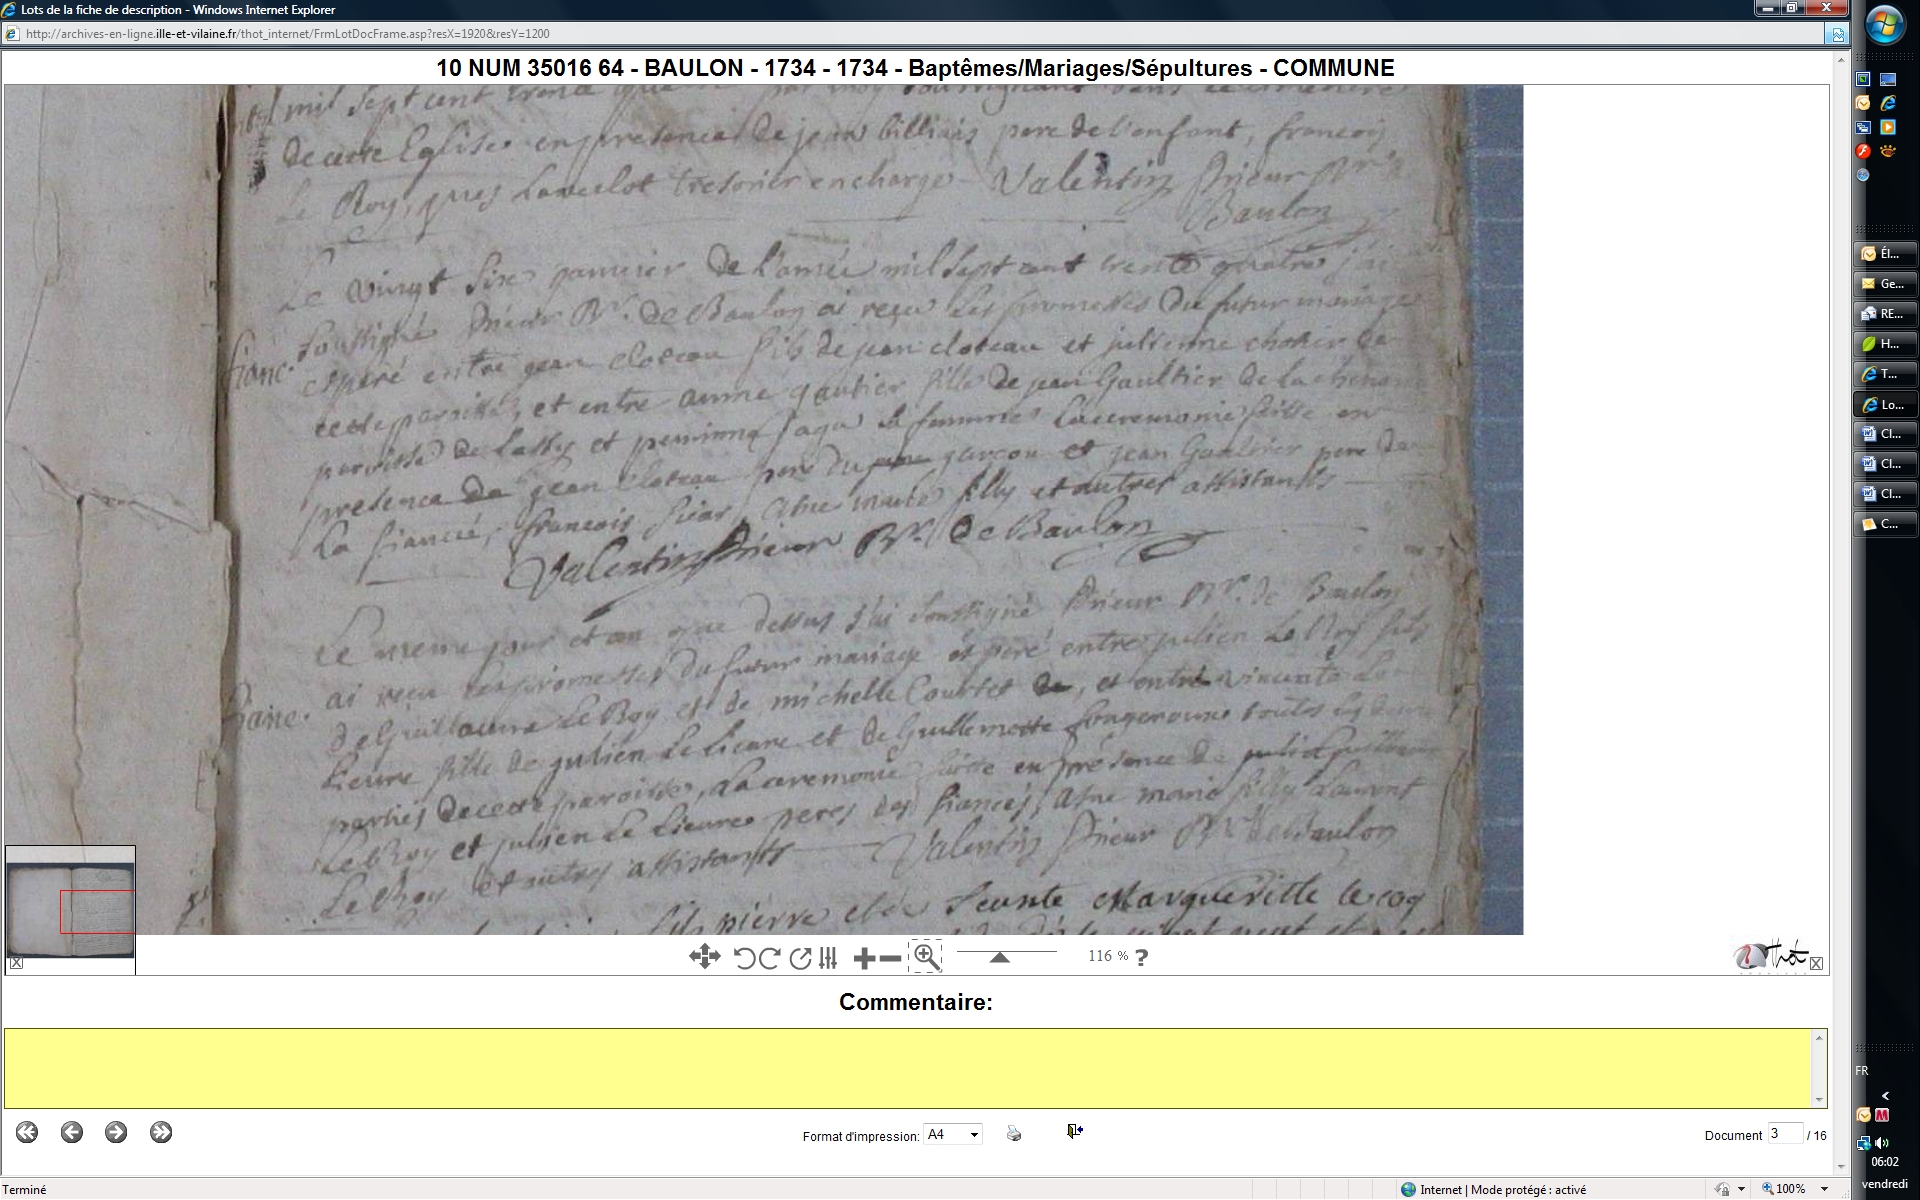 Lots de la fiche de description - Windows Internet Explorer
http://archives-en-ligne.ille-et-vilaine.fr/thot_internet/FrmLotDocFrame.asp?resX=1920&resY=1200
10 NUM 35016 64 - BAULON - 1734 - 1734 - Baptêmes/Mariages/Sépultures - COMMUNE
mil sept cent trente
de cette Eglise en presence de jean billiais pere de l'enfant, francois
Le Roy, Lancelot tresorier en charge Valentin Prieur
Baulon
Le vingt six janvier de l'année mil sept cent trente quatre j'ai
soussigné Prieur Rr. de Baulon ai reçu les promesses du futur mariage
fianc.
espéré entre jean cloteau fils de jean cloteau et julienne de
cette paroisse, et entre anne gautier fille de jean Gaultier de la
paroisse de Lassy et perrinne sa femme La ceremonie faitte en
presence de jean cloteau pere du garcon et jean Gaultier pere de
la fiancée, francois et autres assistants
Valentin Prieur Rr. de Baulon
Le meme jour et an que dessus j'ai soussigné Prieur Rr. de Baulon
ai reçu les promesses du futur mariage espéré entre julien Le Roy fils
fianc.
de Guillaume Le Roy et de michelle Courtet de, et entre vincente Le
Lieure fille de julien Le Lieure et de Guillemette toutes les deux
parties de cette paroisse, La ceremonie faitte en presence de
Le Roy et julien Le Lieure peres des fiancés, Laurent
Le Roy et autres assistants Valentin Prieur Rr. de Baulon
fils pierre Margueritte le coq
116 % ?
Thot
Commentaire:
Format d'impression: A4
Document 3 / 16
Terminé
Internet | Mode protégé : activé
100%
Él...
Ge...
RE...
H...
T...
Lo...
Cl...
Cl...
Cl...
C...
FR
06:02
vendredi